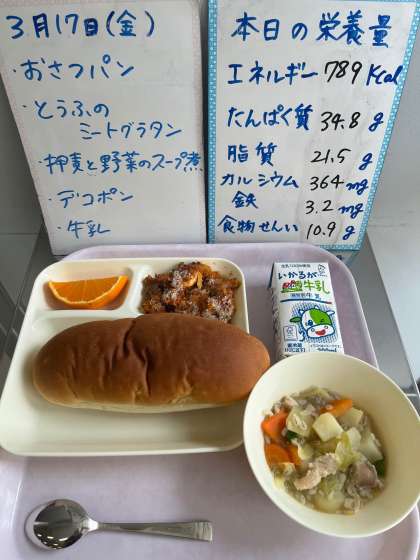 3月17日(金)
・おさつパン
・とうふの
ミートグラタン
・押麦と野菜のスープ煮
・デコポン
・牛乳
本日の栄養量
エネルギー 789 Kcal
たんぱく質 34.8 g
脂質 21.5 g
カルシウム 364 mg
鉄 3.2 mg
食物せんい 10.9 g
いかるが
牛乳